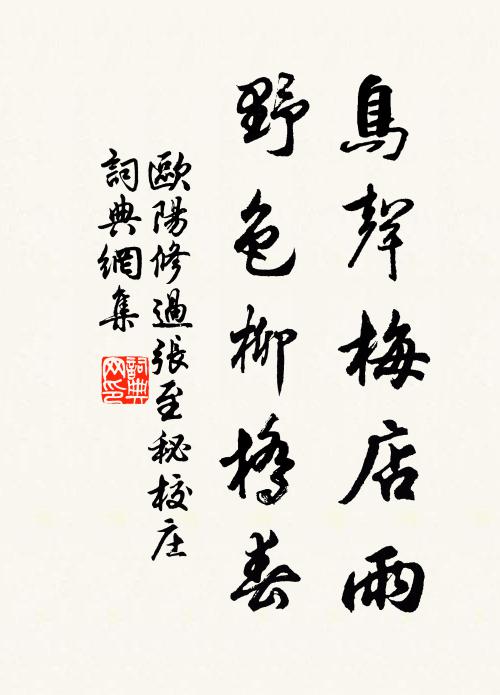 鳥聲梅店雨
野色柳橋春
歐陽修過張至秘校庄
詞典網集
詞典网印